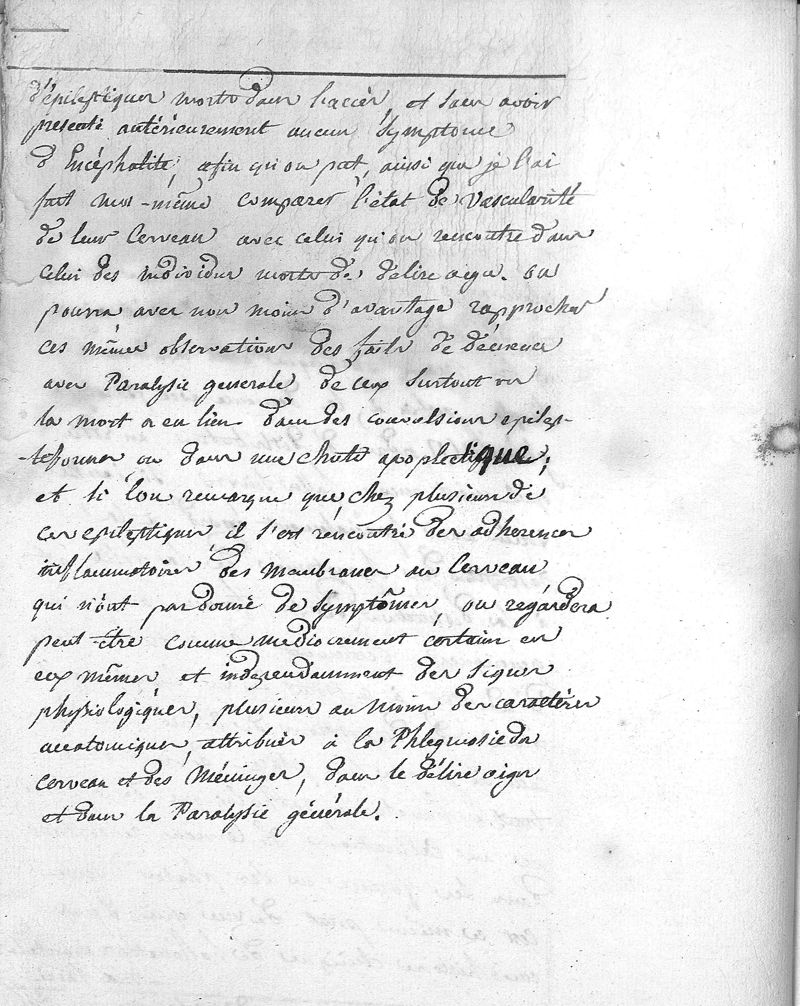 d'épileptiques morts dans l'accès, et sans avoir
présenté antérieurement aucun symptome
d'Encéphalite, afin qu'on put, ainsi que je l'ai
fait moi-même comparer l'état de vascularité
de leur Cerveau avec celui qu'on rencontre dans
celui des individus morts de délire aigu. on
pourra avec non moins d'avantage rapprocher
ces mêmes observations des faits de démence
avec Paralysie generale de ceux surtout où
la mort a eu lieu dans des convulsions epilep-
-tiformes ou dans une chute apoplectique;
et si l'on remarque que chez plusieurs de
ces epileptiques, il s'est rencontré des adherences
inflammatoires des membranes au Cerveau
qui n'ont pas donné de Symptômes, on regardera
peut-être comme mediocrement certains en
eux mêmes et independamment des signes
physiologiques, plusieurs au moins des caractères
anatomiques, attribués à la Phlegmasie du
cerveau et des Méninges, dans le délire aigu
et dans la Paralysie générale.